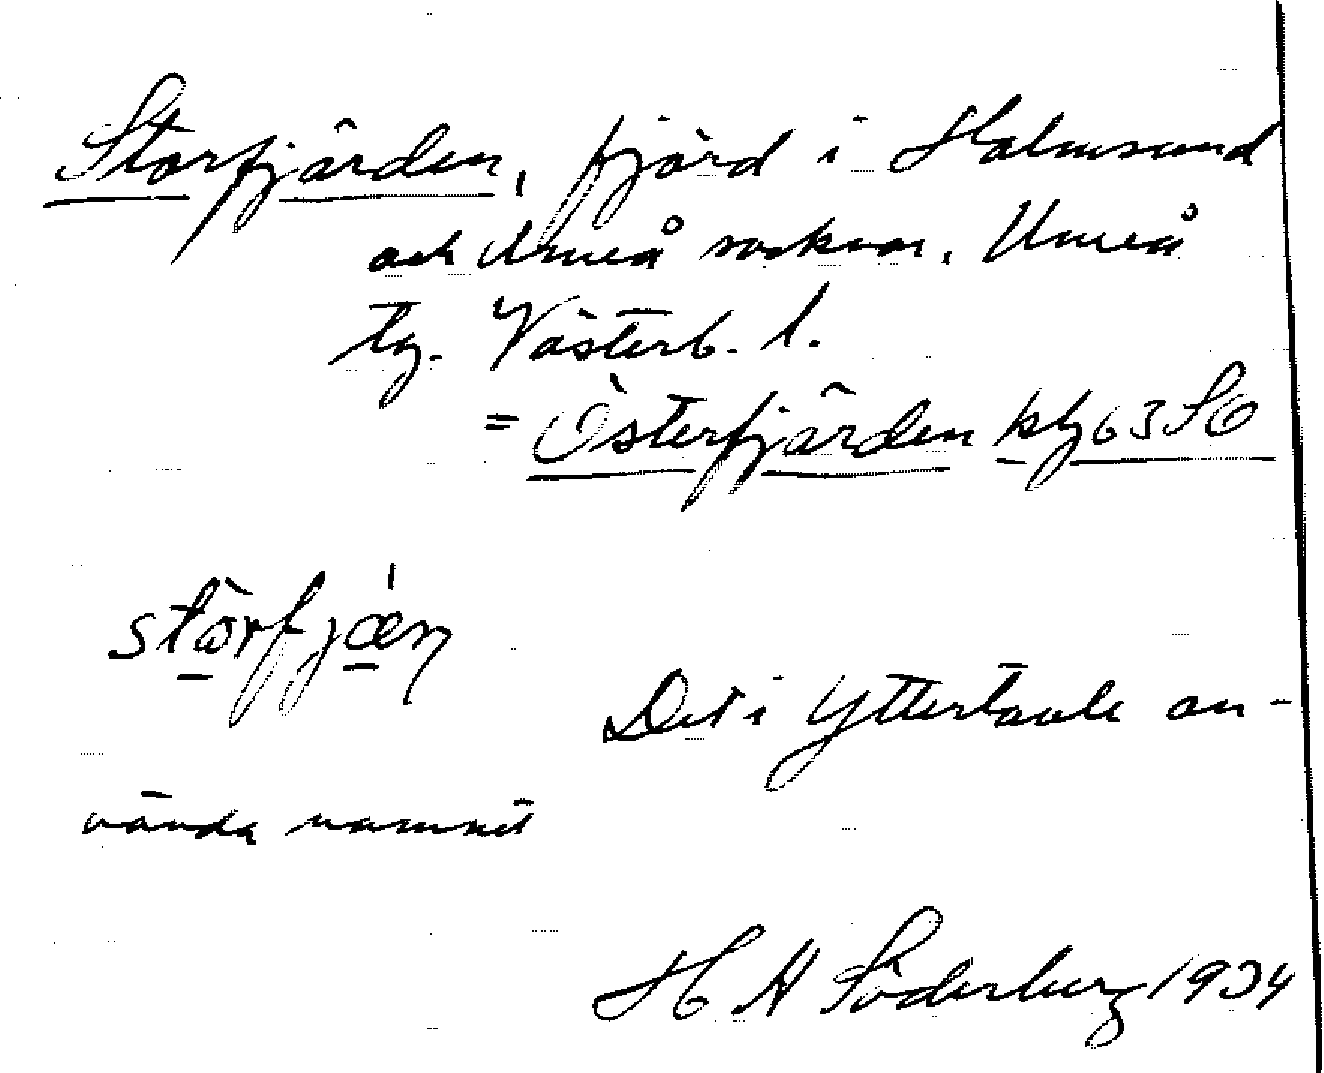 Storfjärden, fjärd i Holmsund
och Umeå socknar, Umeå
tg. Västerb. l.
= Österfjärden kbl 63 SO
stòrfjǽn
Det i Yttertavle an-
vända namnet
H H Söderberg 1934